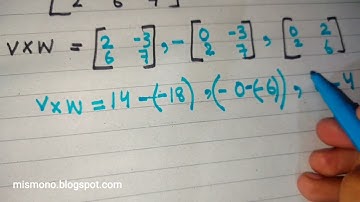 2 6 7
V×W = [2 -3 6 7], - [0 -3 2 7], [0 2 2 6]
V×W = 14 -(-18), (- 0-(-6)), -4
mismono.blogspot.com